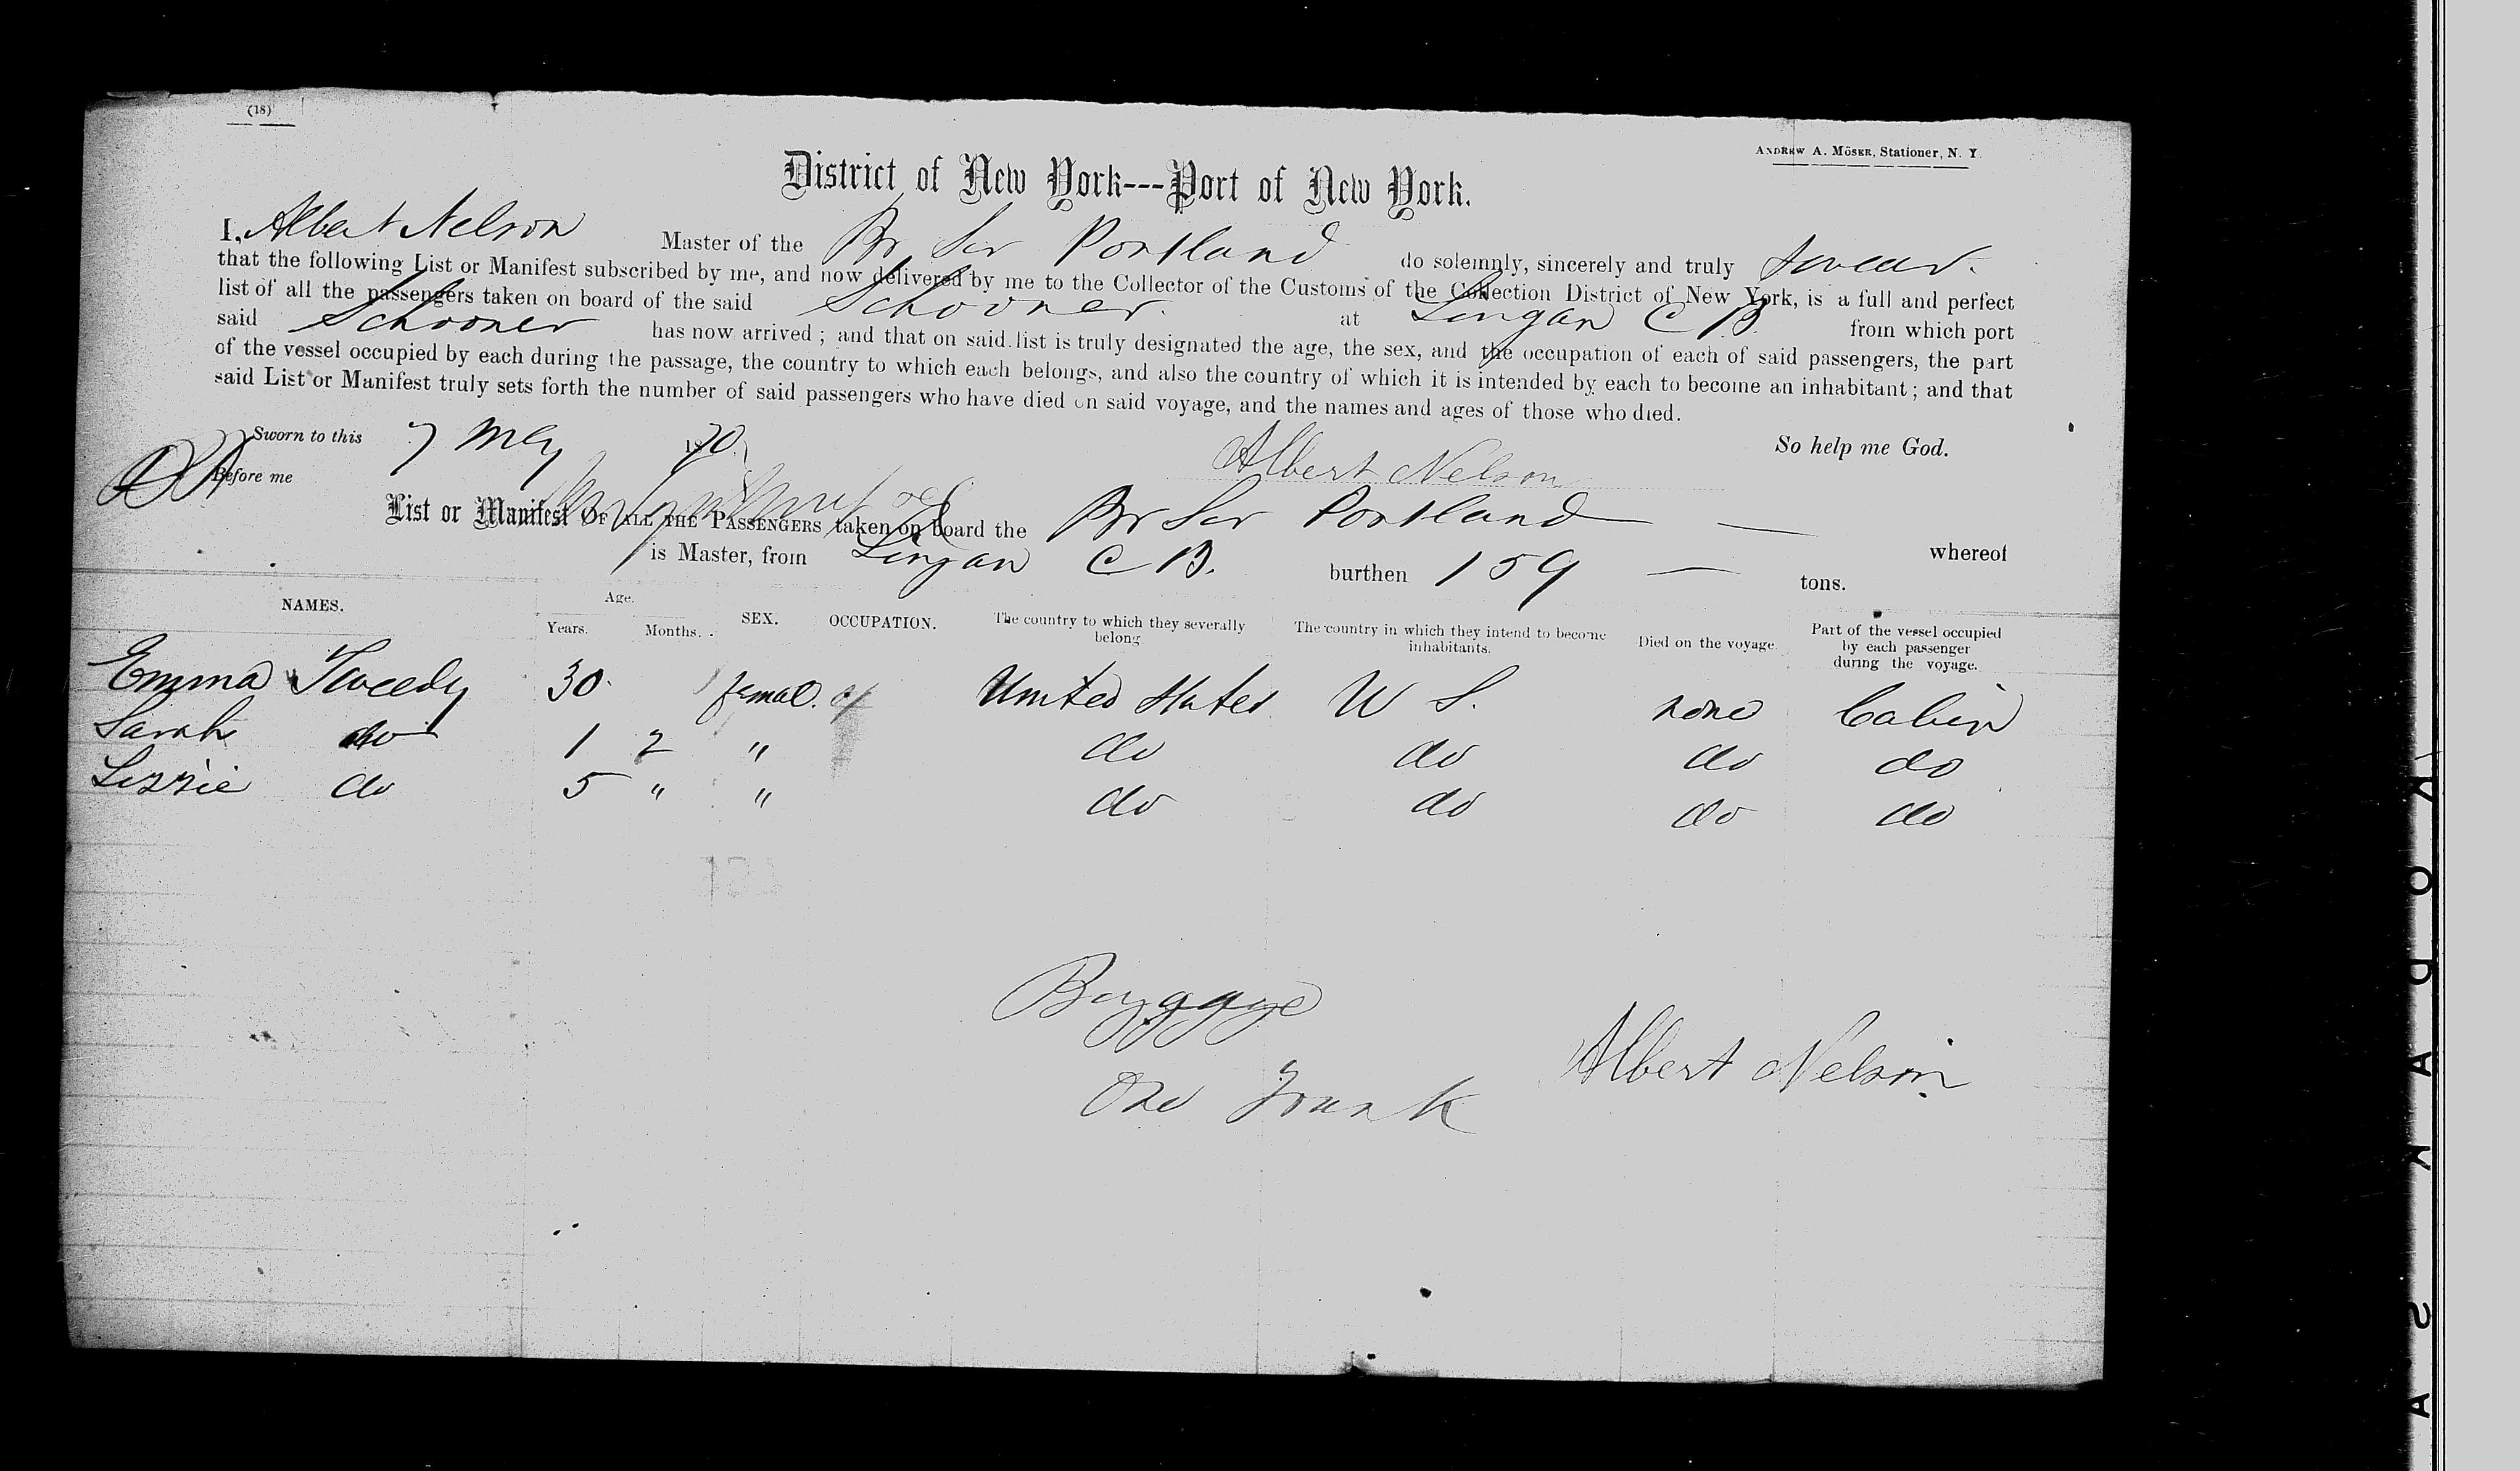 (18)
ANDREW A. MÖSER, Stationer, N. Y.
District of New York---Port of New York.
I, Albert Nelson Master of the Br Scr Portland do solemnly, sincerely and truly swear.
that the following List or Manifest subscribed by me, and now delivered by me to the Collector of the Customs of the Collection District of New York, is a full and perfect
list of all the passengers taken on board of the said Schooner. at Lingan C B from which port
said Schooner has now arrived ; and that on said list is truly designated the age, the sex, and the occupation of each of said passengers, the part
of the vessel occupied by each during the passage, the country to which each belongs, and also the country of which it is intended by each to become an inhabitant ; and that
said List or Manifest truly sets forth the number of said passengers who have died on said voyage, and the names and ages of those who died.
Sworn to this 7 May 1870. So help me God.
Before me Albert Nelson
List or Manifest OF ALL THE PASSENGERS taken on board the Br Scr Portland whereof
is Master, from Lingan C B. burthen 159 tons.
NAMES. Age. Years. Months. SEX. OCCUPATION. The country to which they severally belong The country in which they intend to become inhabitants. Died on the voyage Part of the vessel occupied by each passenger during the voyage.
Emma Tweedy 30 femal. United States U S. none Cabin
Sarah do 1 2 " do do do do
Lizzie do 5 " " do do do do
Baggage
One Trunk
Albert Nelson